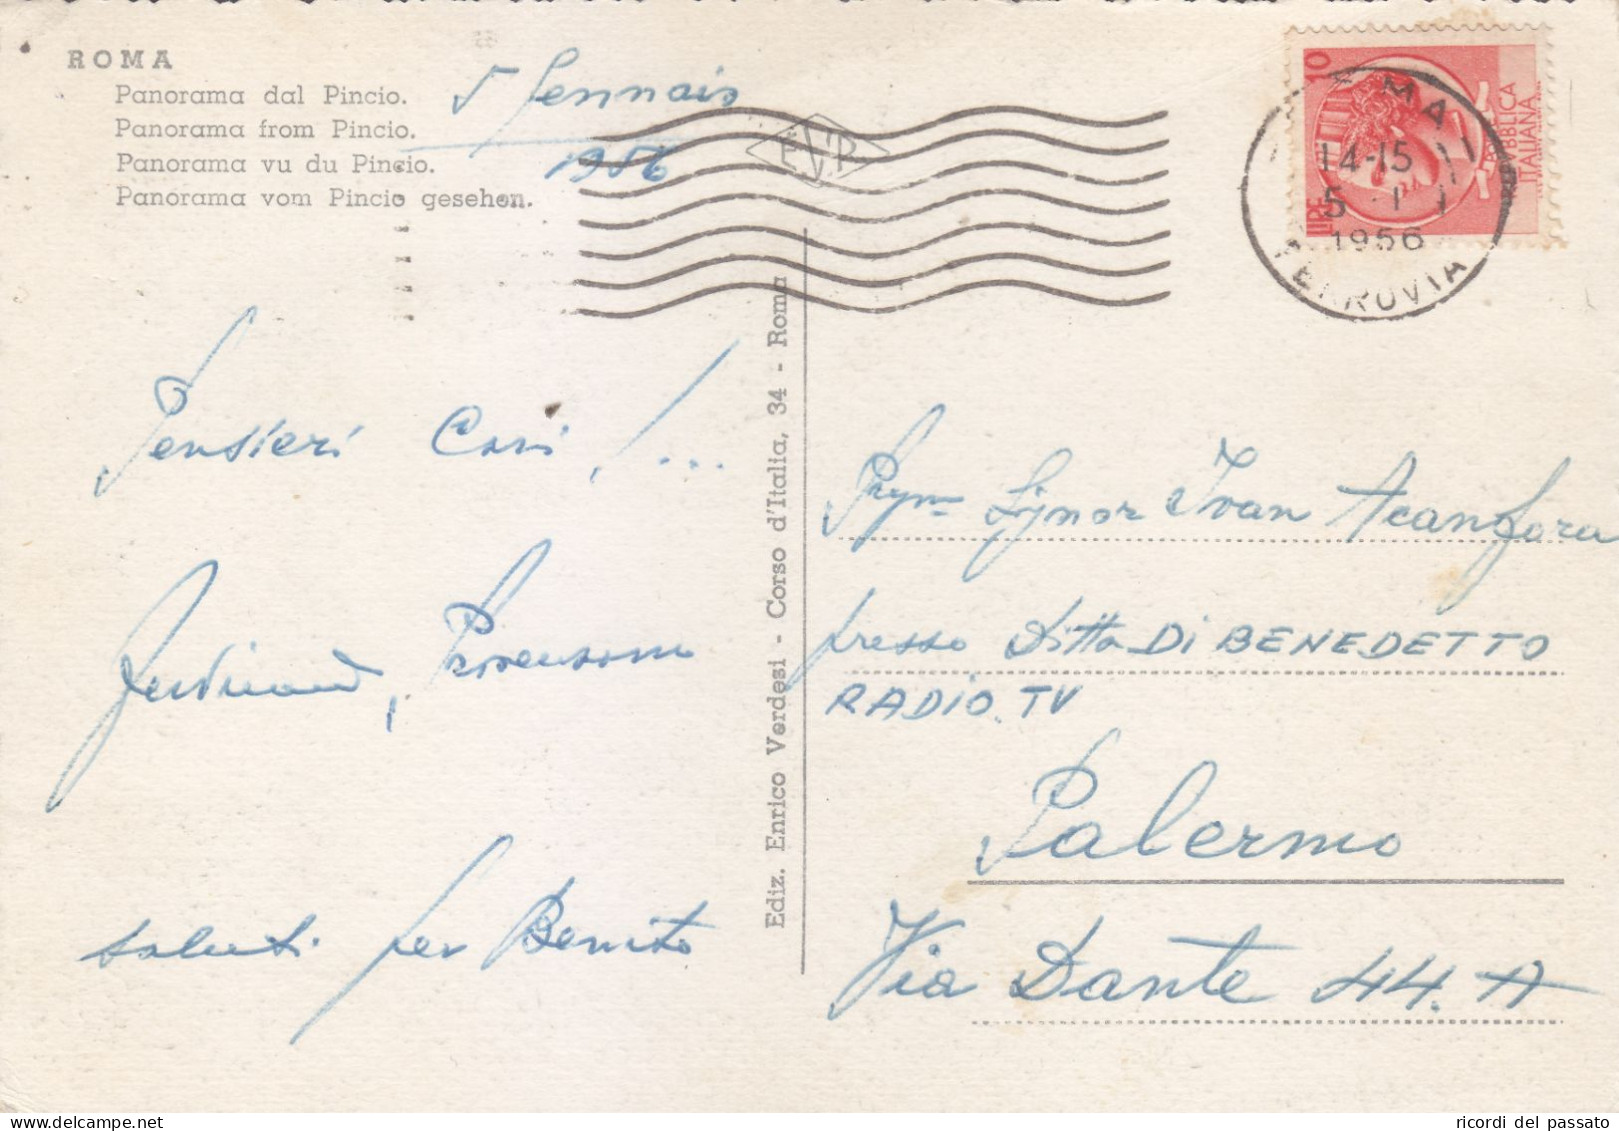 ROMA
Panorama dal Pincio.
Panorama from Pincio.
Panorama vu du Pincio.
Panorama vom Pincio gesehen.
5 Gennaio
1956
E.V.R.
10
LIRE
REPUBBLICA
ITALIANA
ROMA
14-15
5 -1
1956
FERROVIA
Pensieri Cari!...
Ferdinand,
saluti per Benito
Ediz. Enrico Verdesi - Corso d'Italia, 34 - Roma
Signor Ivan Acanfora
presso Ditta DI BENEDETTO
RADIO.TV
Palermo
Via Dante 44.A
ricordi del passato